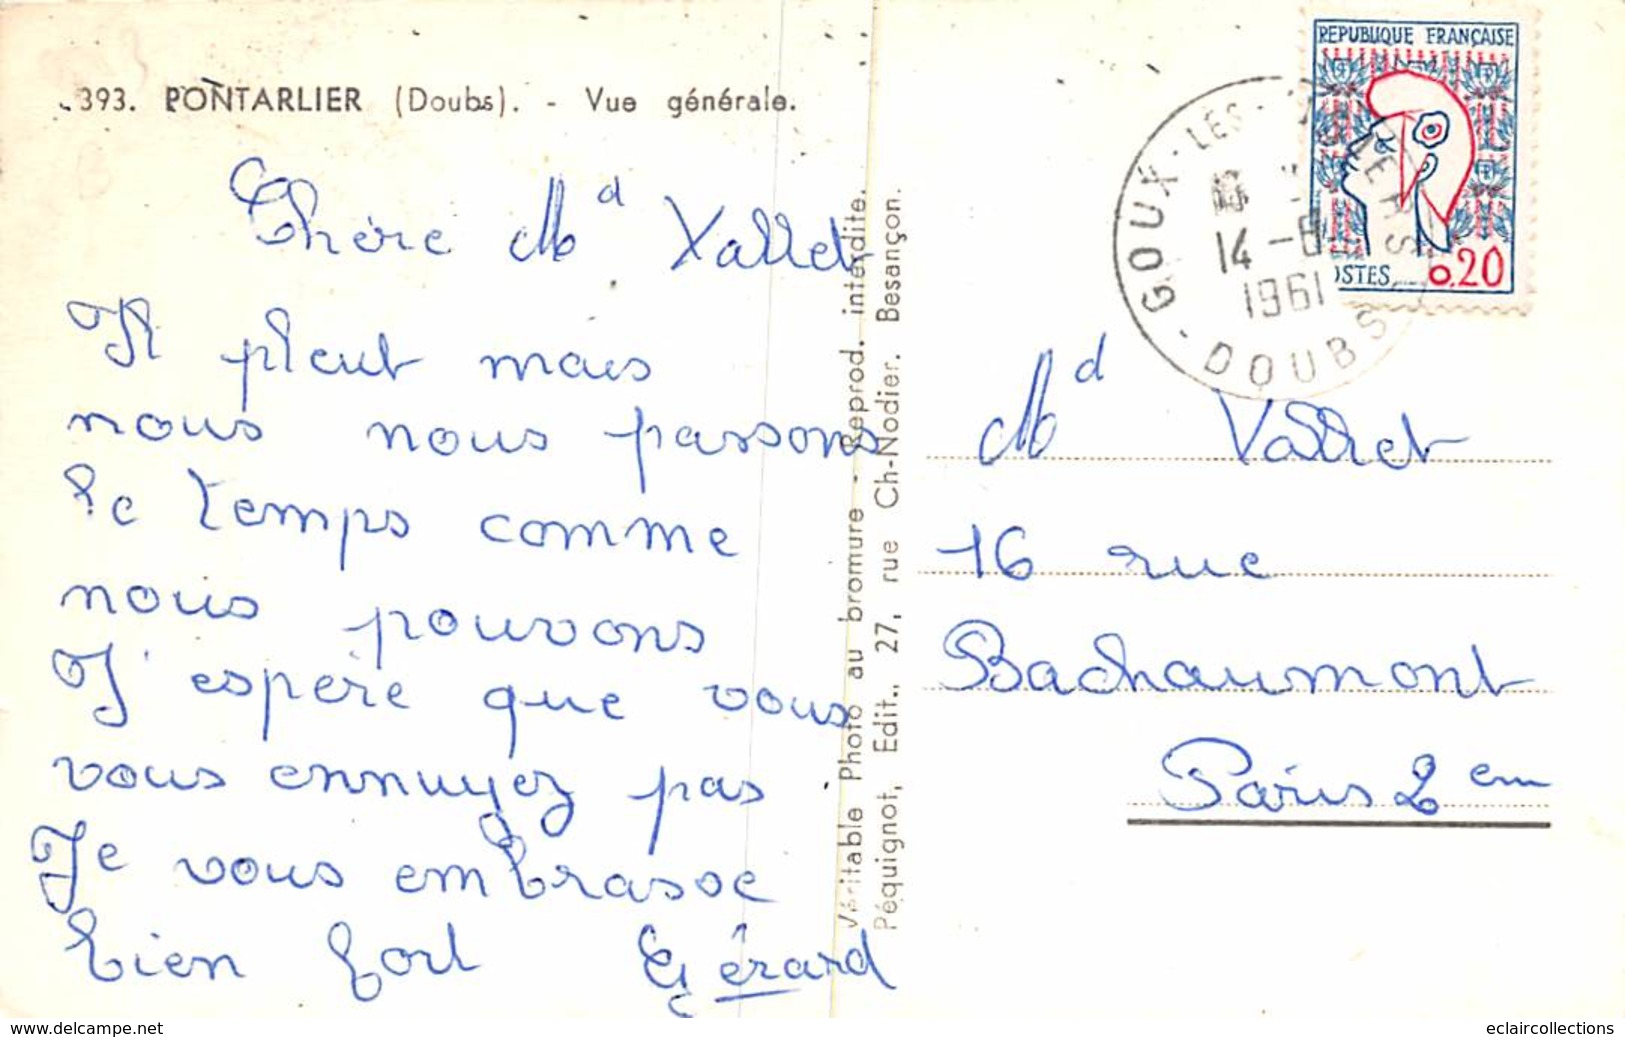 393. PONTARLIER (Doubs). - Vue générale.
Chère Md Vallet
Il pleut mais
nous nous passons
le temps comme
nous pouvons
J'espère que vous
vous ennuyez pas
Je vous embrasse
bien fort Gérard
Véritable Photo au bromure - Reprod. interdite.
Péquignot, Edit., 27, rue Ch-Nodier. Besançon.
REPUBLIQUE FRANÇAISE
POSTES 0.20
GOUX-LES-USIERS
14-8
1961
DOUBS
Md Vallet
16 rue
Bachaumont
Paris 2em
www.delcampe.net
eclaircollections